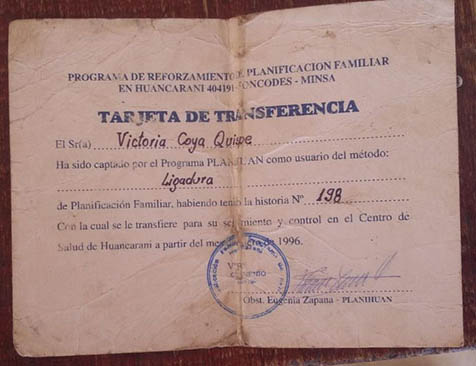 PROGRAMA DE REFORZAMIENTO PLANIFICACION FAMILIAR
EN HUANCARANI 404191 FONCODES - MINSA
TARJETA DE TRANSFERENCIA
El Sr(a) Victoria Coya Quispe
Ha sido captado por el Programa PLANIHUAN como usuario del método:
Ligadura
de Planificación Familiar, habiendo tenido la historia Nº 198
Con la cual se le transfiere para su seguimiento y control en el Centro de
Salud de Huancarani a partir del 1996.
Obst. Eugenia Zapana - PLANIHUAN